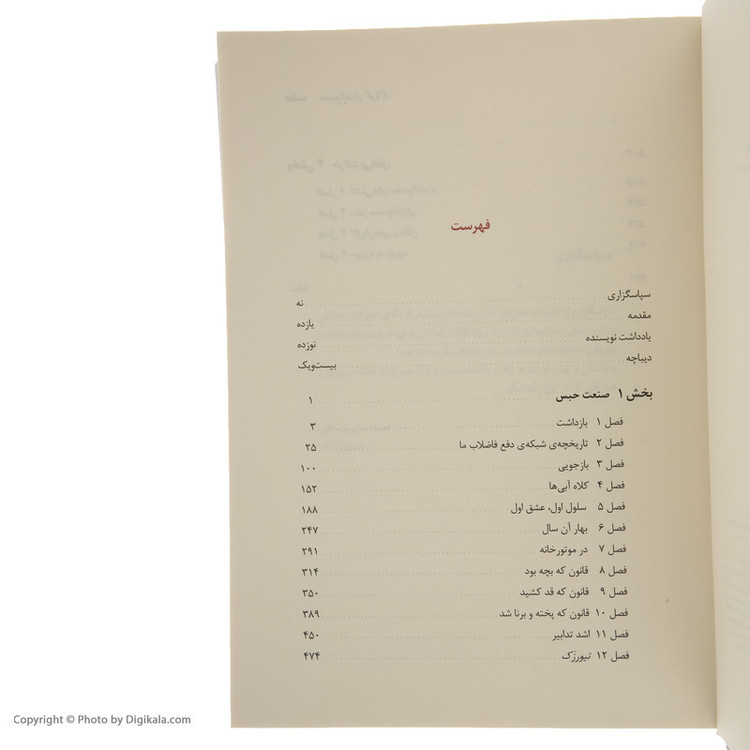 فهرست
سپاسگزاری نه
مقدمه یازده
یادداشت نویسنده نوزده
دیباچه بیست‌ویک
بخش ۱ صنعت حبس ۱
فصل ۱ بازداشت ۳
فصل ۲ تاریخچه‌ی شبکه‌ی دفع فاضلاب ما ۲۵
فصل ۳ بازجویی ۱۰۰
فصل ۴ کلاه آبی‌ها ۱۵۲
فصل ۵ سلول اول، عشق اول ۱۸۸
فصل ۶ بهار آن سال ۲۴۷
فصل ۷ در موتورخانه ۲۹۱
فصل ۸ قانون که بچه بود ۳۱۴
فصل ۹ قانون که قد کشید ۳۵۰
فصل ۱۰ قانون که پخته و برنا شد ۳۸۹
فصل ۱۱ اشد تدابیر ۴۵۰
فصل ۱۲ تیورزَک ۴۷۴
Copyright © Photo by Digikala.com